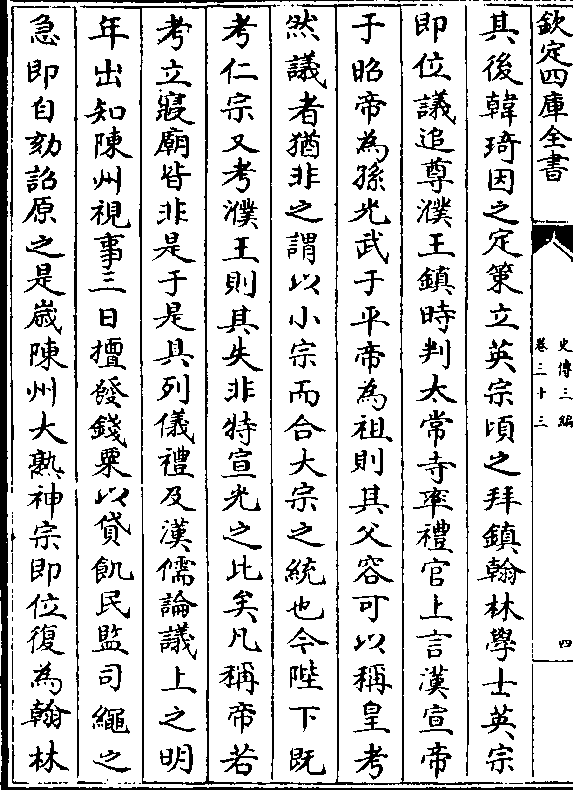 欽定四庫全書
史傳三編
卷三十三
四
其後韓琦因之定策立英宗頃之拜鎮翰林學士英宗
即位議追尊濮王鎮時判太常寺率禮官上言漢宣帝
于昭帝為孫光武于平帝為祖則其父容可以稱皇考
然議者猶非之謂以小宗而合大宗之統也今陛下既
考仁宗又考濮王則其失非特宣光之比矣凡稱帝若
考立寢廟皆非是于是具列儀禮及漢儒論議上之明
年出知陳州視事三日擅發錢粟以貸飢民監司繩之
急即自劾詔原之是嵗陳州大熟神宗即位復為翰林